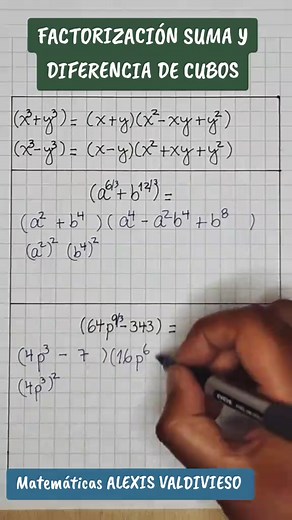 FACTORIZACIÓN SUMA Y
DIFERENCIA DE CUBOS
(x³+y³) = (x+y)(x²-xy+y²)
(x³-y³) = (x-y)(x²+xy+y²)
(a^{6/3}+b^{12/3}) =
(a² + b⁴ )(a⁴-a²b⁴+b⁸ )
(a²)² (b⁴)²
(64p^{9/3}-343) =
(4p³ - 7 )(16p⁶
(4p³)²
Matemáticas ALEXIS VALDIVIESO